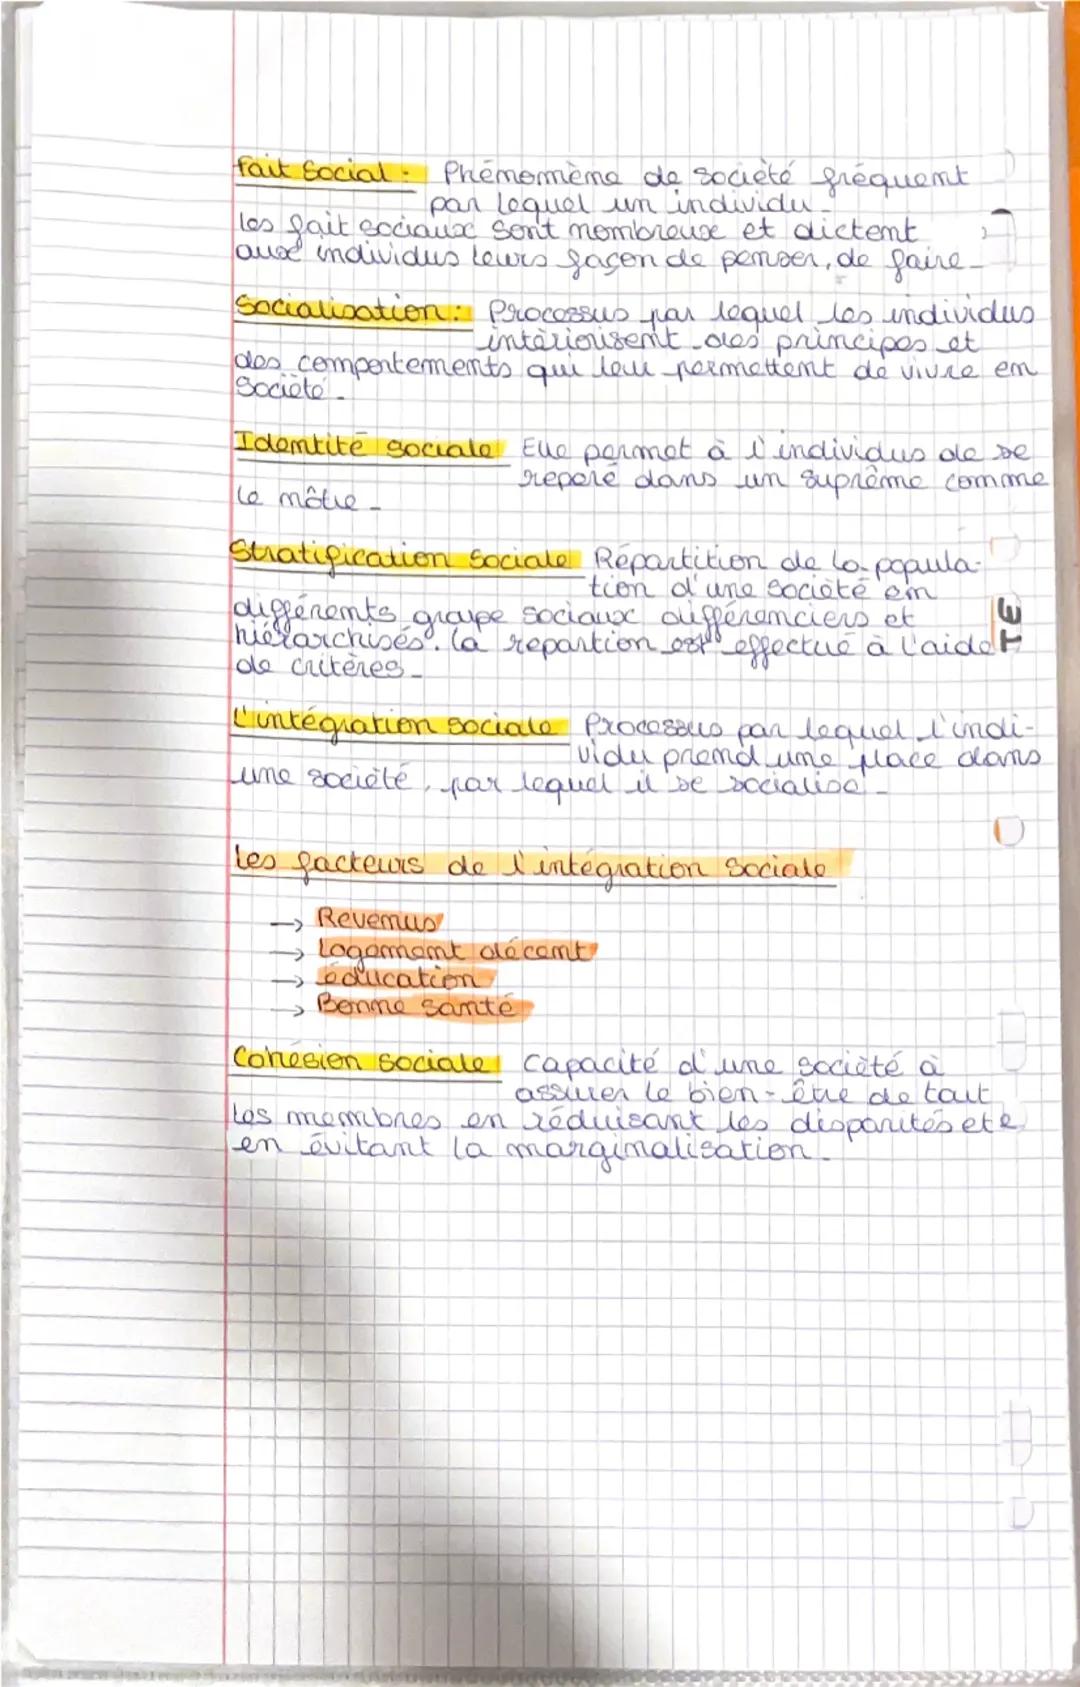 Fait Social : Phénomène de société fréquent
par lequel un individu.
les fait sociaux sont nombreuse et dictent
aux individus leurs façon de penser, de faire.
Socialisation : Processus par lequel les individus
intèriorisent des principes et
des comportements qui leur permettent de vivre en
Société.
Identité sociale Elle permet à l'individus de se
reperé dans un suprême comme
le nôtre.
Stratification sociale Répartition de la popula-
tion d'une société en
différents groupe sociaux différenciers et
hiérarchisés. la repartion est effectué à l'aide
de critères.
TE
L'intégration sociale Processus par lequel l'indi-
vidu prend une place dans
une société, par lequel il se socialise.
Les facteurs de l'intégration sociale
→ Revenus
→ Logement décent
→ éducation
→ Bonne santé
Cohésion sociale Capacité d'une société à
assurer le bien-être de tout
Les membres en réduisant les disparités et
en évitant la marginalisation.